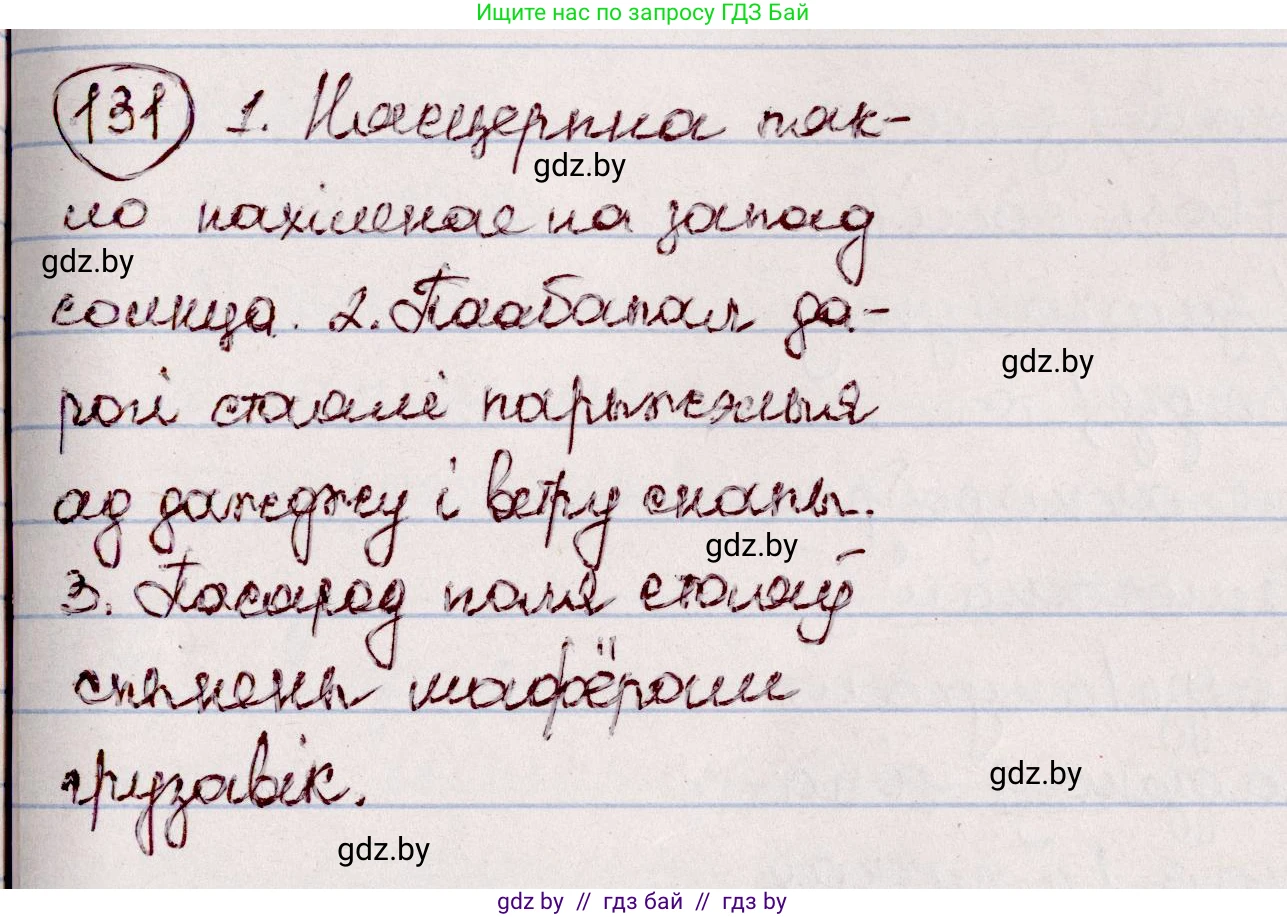 Ищите нас по запросу ГДЗ Бай
131 1. Нясцерпна пяк-
ло нахіленае на запад
gdz.by
сонца. 2. Паабапал да-
gdz.by
рогі стаялі парыжэлыя
gdz.by
ад дажджу і ветру снапы.
gdz.by
3. Пасярод поля стаяў
спынены шафёрам
грузавік.
gdz.by
gdz.by
gdz by // гдз бай // гдз by